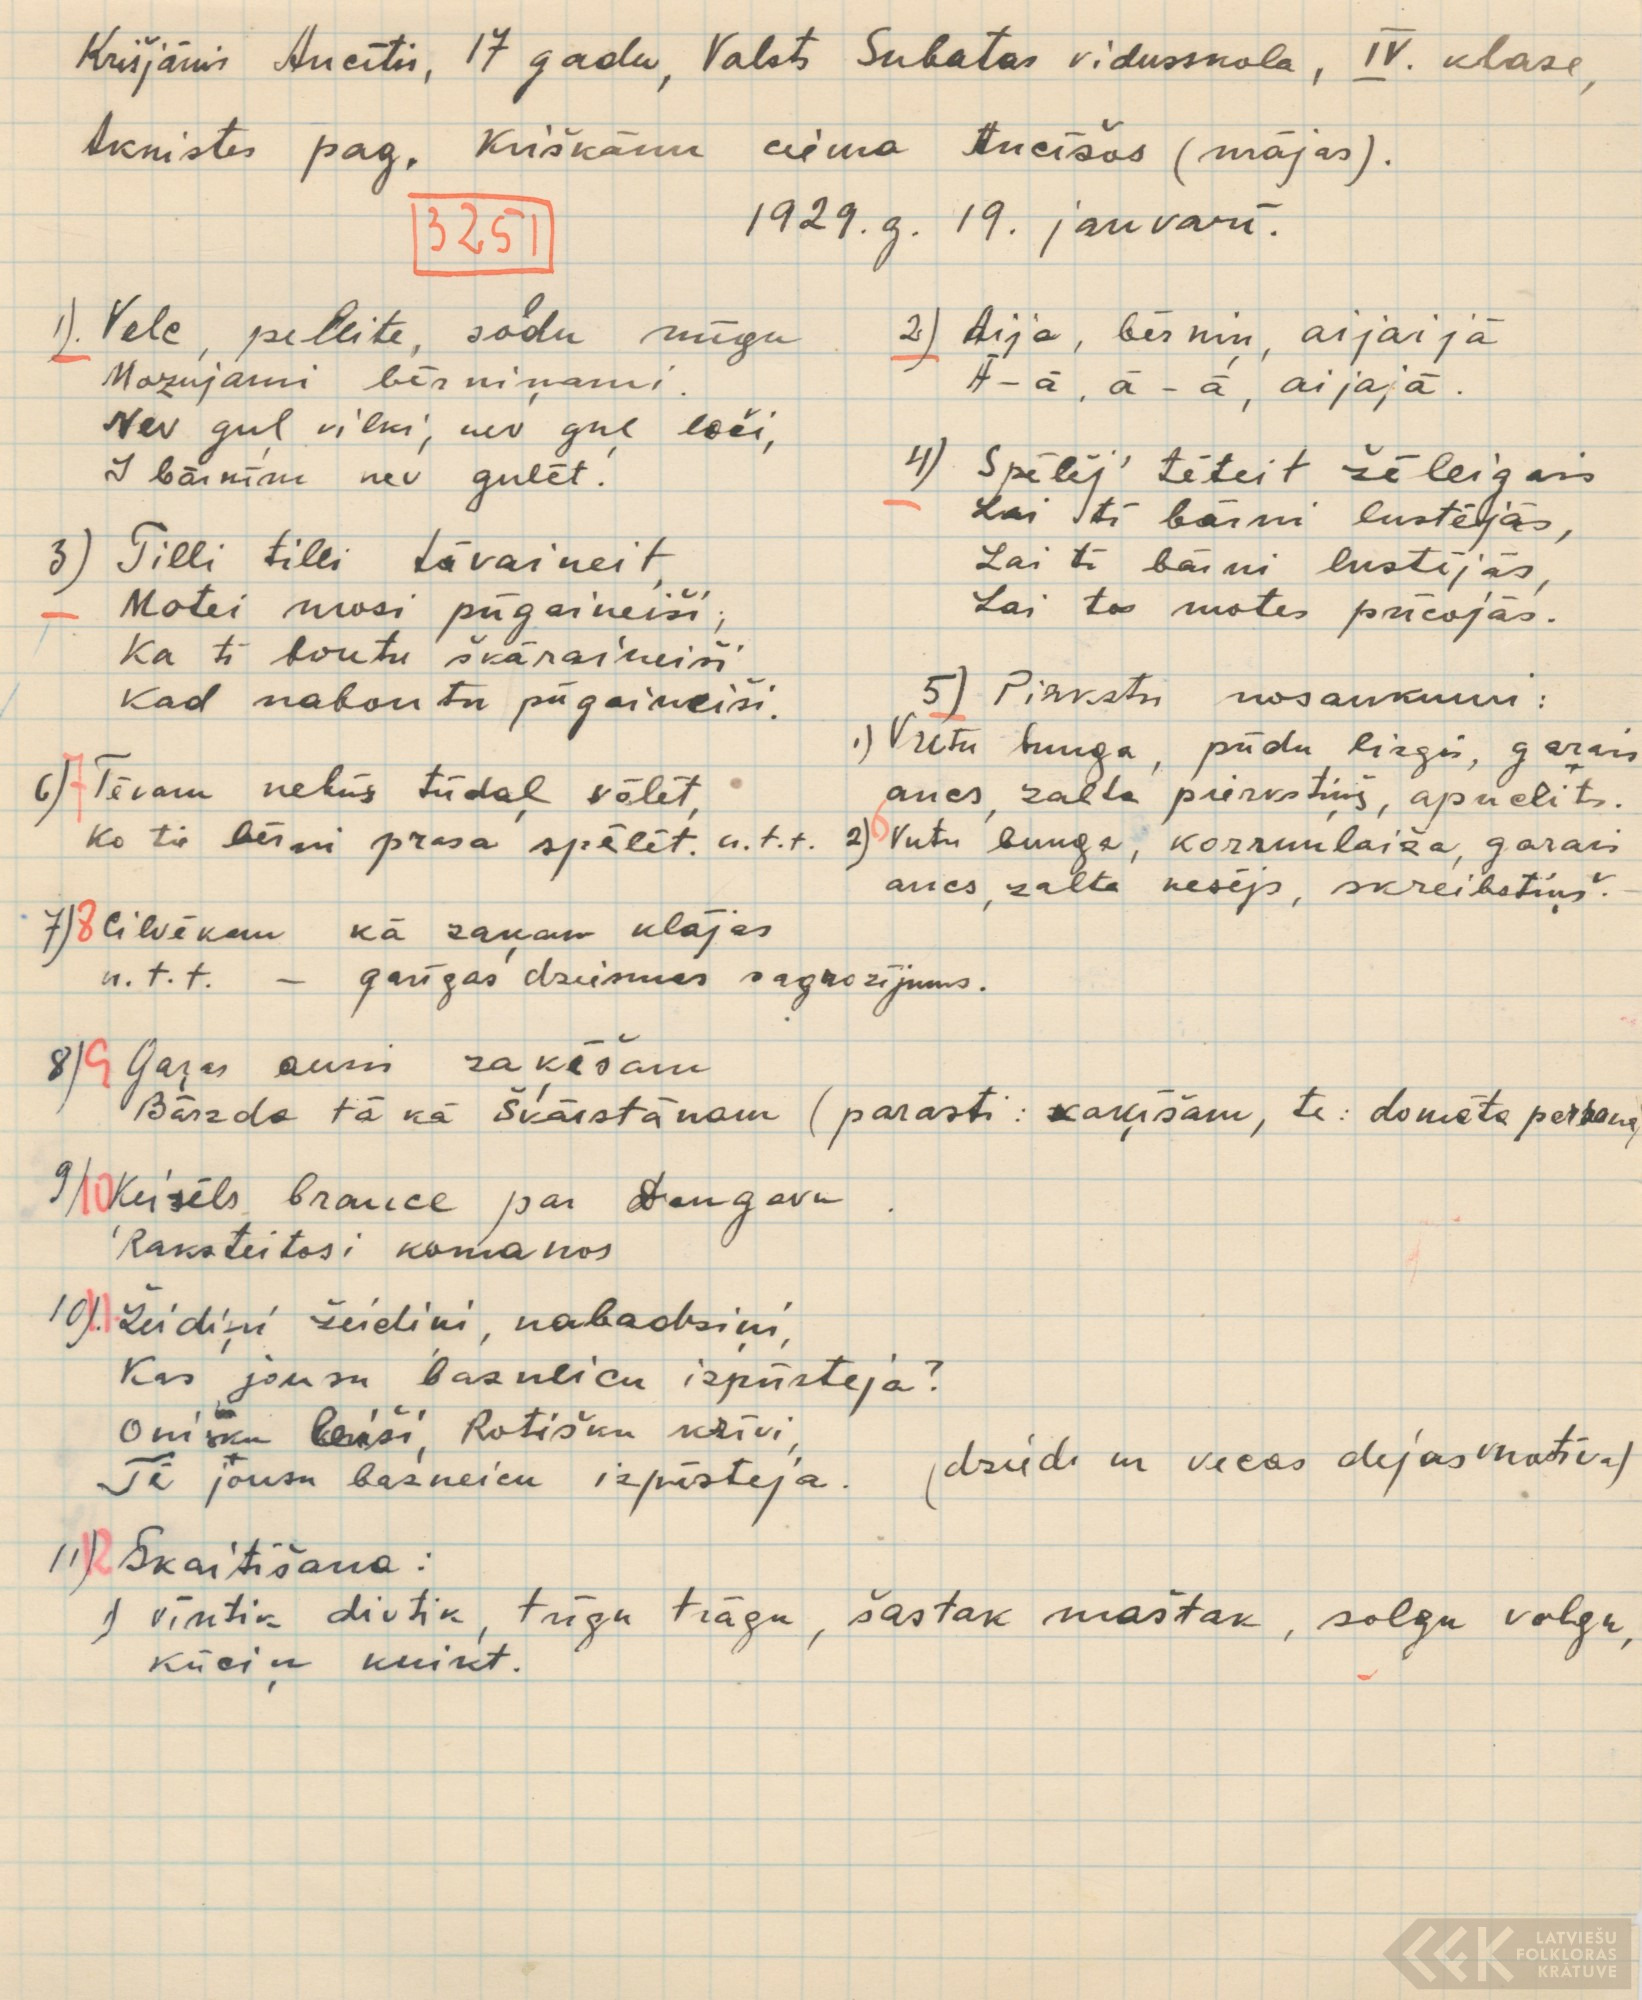 Krišjānis Ancītis, 17 gadu, Valsts Subatas vidusskola, IV. klase,
Aknīstes pag. Kriškānu ciema Ancīšos (mājas).
3251
1929. g. 19. janvarī.
1). Vele, pelīte, sādu mīgu
Mozujami bērniņami.
Nev guļ vilki, nev guļ loči,
I bārnim nev gulēt.
2) Aija, bērniņ, aijaijā
Ā-ā, ā-ā, aijajā.
3) Tilli tilli tāvaineit,
Motei mosi pūgaineiši;
Ka tī boutu škāraineiši
Kad naboutu pūgaineiši.
4) Spēlēj' tēteit žēleigais
Lai tī bārni lustējās,
Lai tī bārni lustējās,
Lai tos motes prīcojās.
5) Pirkstu nosaukumi:
1) Vutu bunga, pūdu lizgis, garais
ancs, zalta pierkstiņš, apnelits.
2) 6 Vutu bunga, korrumlaiža, garais
ancs, zalta nesējs, skreibstiņš. –
6) 7 Tēvam nebūs tūdaļ vēlēt,
Ko tie bērni prasa spēlēt. u.t.t.
7) 8 Cilvēkam kā zaķam klājas
u.t.t. – garīgas dziesmas sagrozījums.
8) 9 Gaŗas ausis zaķēšam
Bārzda tā kā Škārstānam (parasti: kaķīšam, te: domāta persona)
9) 10 Keisēls brauce par Daugavu
Raksteitosi komanos
10). 11 Žeidiņi žeidiņi, nabadziņi,
Kas jousu bazneicu izpūsteja?
Onišku leiši, Rotišku krīvi,
Tē jousu bazneicu izpūsteja. (dzied ar vecas dejas motīva)
11) 12 Skaitīšana:
1) vīntik divtik, trīgu trāgu, šastak maštak, solgu volgu,
kūciņ kuikt.
LATVIEŠU
FOLKLORAS
KRĀTUVE